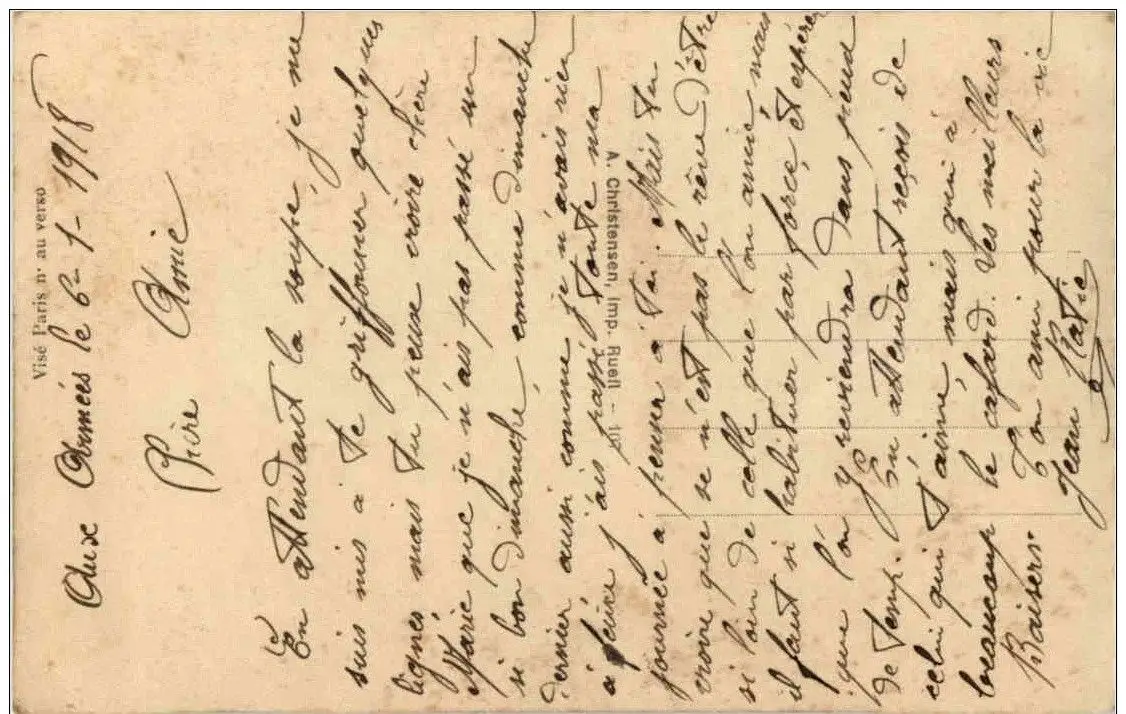 Visé Paris n° au verso
Aux Armées le 6-1-1918
Chère Amie
En attendant la soupe, je me
suis mis à te griffonner quelques
lignes mais tu peux croire chère
Marie que je n'ais pas passé un
si bon dimanche, comme dimanche
dernier aussi comme je n'avais rien
à faire j'ais passé toute ma
A. Christensen, Imp. Rueil
journée à penser à toi Mais tu
croire que se n'est pas le rêve d'être
si loin de celle que l'on aime, mais
il faut si habituer par force, et espérer
que l'on y reviendra dans peux
de temp. En attendant reçois de
celui qui t'aime, mais qui à
beaucoup le cafard. Les meilleurs
Baisers. Ton ami pour la vie
Jean